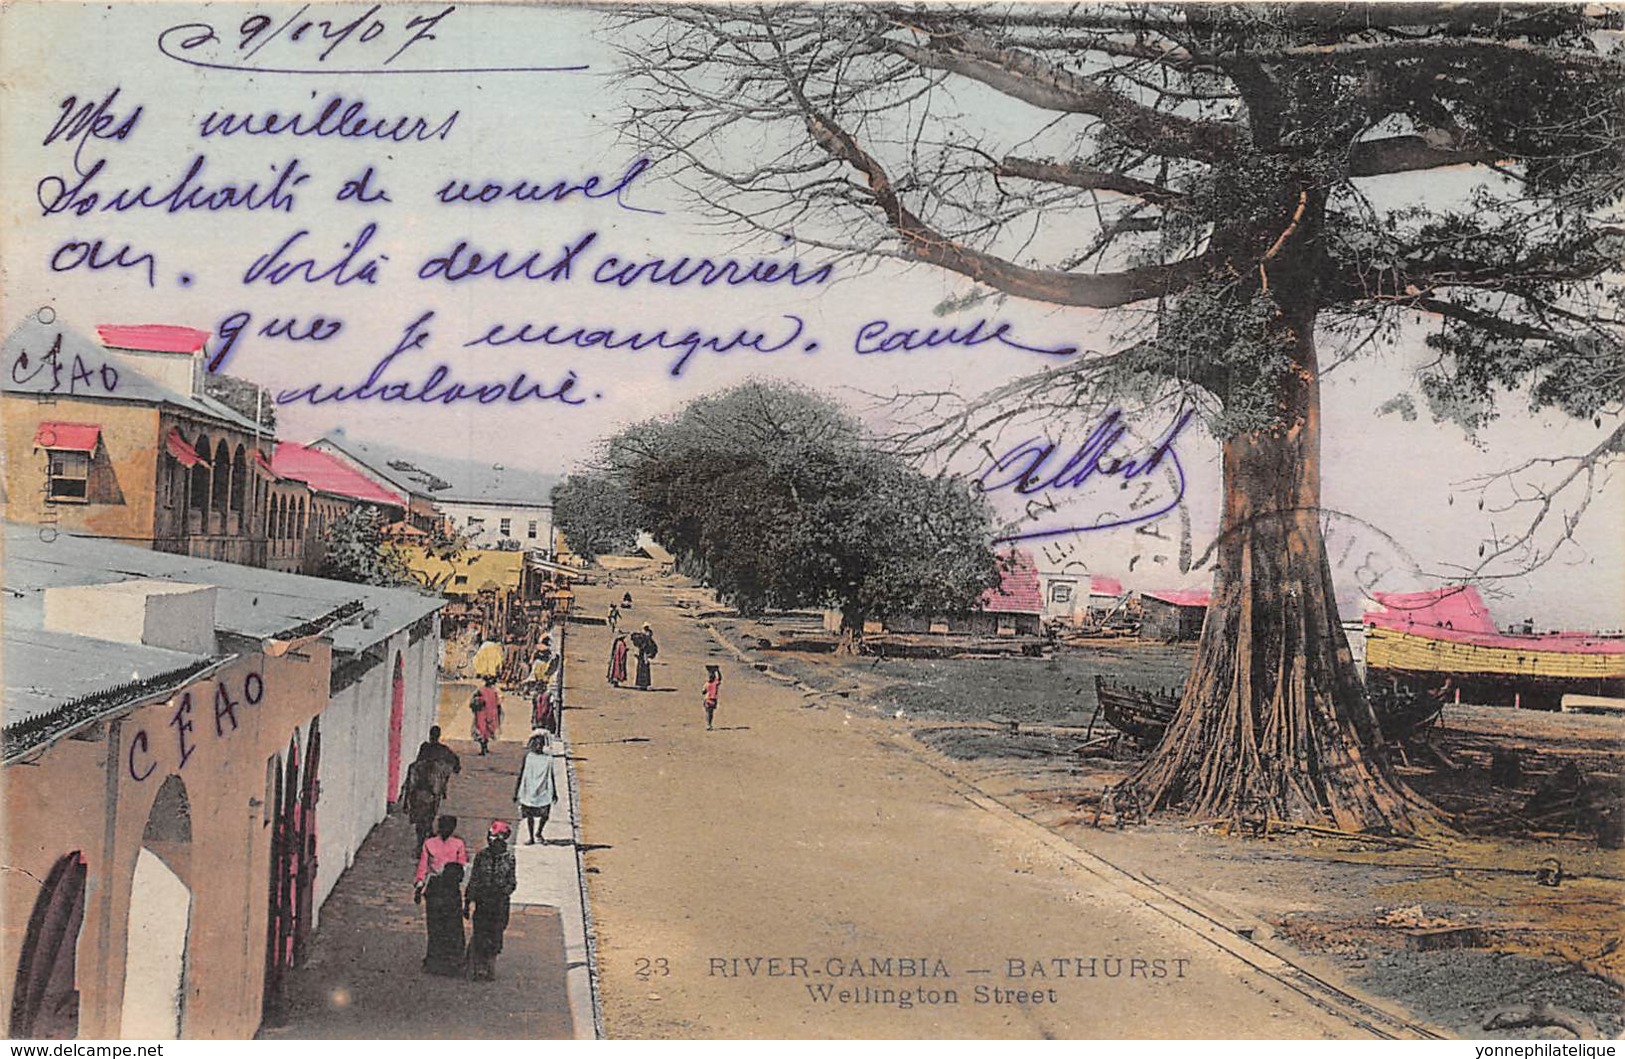 9/12/07
Mes meilleurs
Souhaits de nouvel
an. Voilà deux courriers
que je manque. cause
maladie.
Albert
CFAO
CFAO
23 RIVER-GAMBIA — BATHURST
Wellington Street
yonnephilatelique